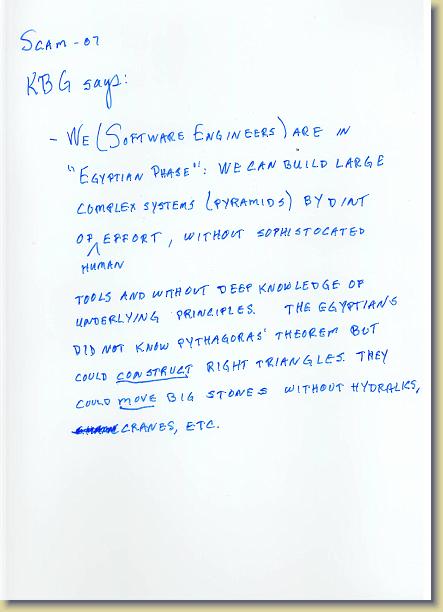 SCAM - 07
KBG says:
- WE (SOFTWARE ENGINEERS) ARE IN
"EGYPTIAN PHASE": WE CAN BUILD LARGE
COMPLEX SYSTEMS (PYRAMIDS) BY DINT
OF HUMAN EFFORT, WITHOUT SOPHISTOCATED
TOOLS AND WITHOUT DEEP KNOWLEDGE OF
UNDERLYING PRINCIPLES. THE EGYPTIANS
DID NOT KNOW PYTHAGORAS' THEOREM BUT
COULD CONSTRUCT RIGHT TRIANGLES. THEY
COULD MOVE BIG STONES WITHOUT HYDRALICS,
CRANES, ETC.